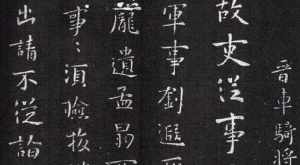 晉車騎將
故吏從事
軍事劉遐
龐遺孟
事〻須險
出請不從詣